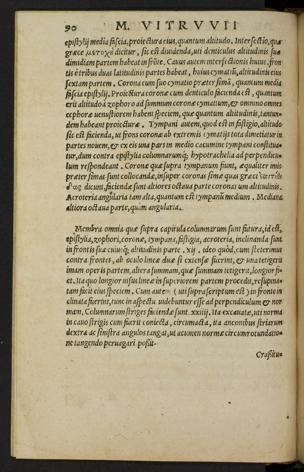 90 M. VITRVVII
epistylij media fascia, proiectura eius, quantum altitudo. Intersectio, quæ
græce μετοχὴ dicitur, sic est diuidenda, uti denticulus altitudinis suæ
dimidiam partem habeat in frōte. Cauus autem intersectionis huius, fron
tis è tribus duas latitudinis partes habeat, huius cymatiū, altitudinis eius
sextam partem. Corona cum suo cymatio præter simā, quantum media
fascia epistylij. Proiectura coronæ cum denticulo facienda est, quantum
erit altitudo à zophoro ad summum coronæ cymatium, & omnino omnes
ecphoræ uenustiorem habent speciem, quæ quantum altitudinis, tantun-
dem habeant proiecturæ. Tympani autem, quod est in fastigio, altitudo
sic est facienda, ut frons coronæ ab extremis cymatijs tota dimetiatur in
partes nouem, & ex eis una pars in medio cacumine tympani constitua-
tur, dum contra epistylia columnarumq; hypotrachelia ad perpendicu
lum respondeant. Coronæ quæ supra tympanum fiunt, æqualiter imis
præter simas sunt collocandæ, insuper coronas simæ quas græci
dicunt, faciendæ sunt altiores octaua parte coronarum altitudinis.
Acroteria angularia tam alta, quantum est tympanū medium. Mediana
altiora octaua parte, quàm angularia.
Membra omnia quæ supra capitula columnarum sunt futura, id est,
epistylia, zophori, coronæ, tympana, fastigia, acroteria, inclinanda sunt
in frontis suæ cuiusq; altitudinis parte xij. ideo quòd, cum steterimus
contra frontes, ab oculo lineæ duæ si extensæ fuerint, & una tetigerit
imam operis partem, altera summam, quæ summam tetigerit, longior fi-
et. Ita quo longior uisus lineæ in superiorem partem procedit, resupina-
tam facit eius speciem. Cum autem (uti suprascriptum est) in fronte in
clinata fuerint, tunc in aspectu uidebuntur esse ad perpendiculum & nor
mam. Columnarum striges faciendæ sunt xxiiij. ita excauatæ, uti norma
in cauo strigis cum fuerit coniecta, circumacta, ita anconibus striarum
dextra ac sinistra angulos tangat, ut acumen normæ circum rotundatio-
ne tangendo peruagari possit.
Crassitu-